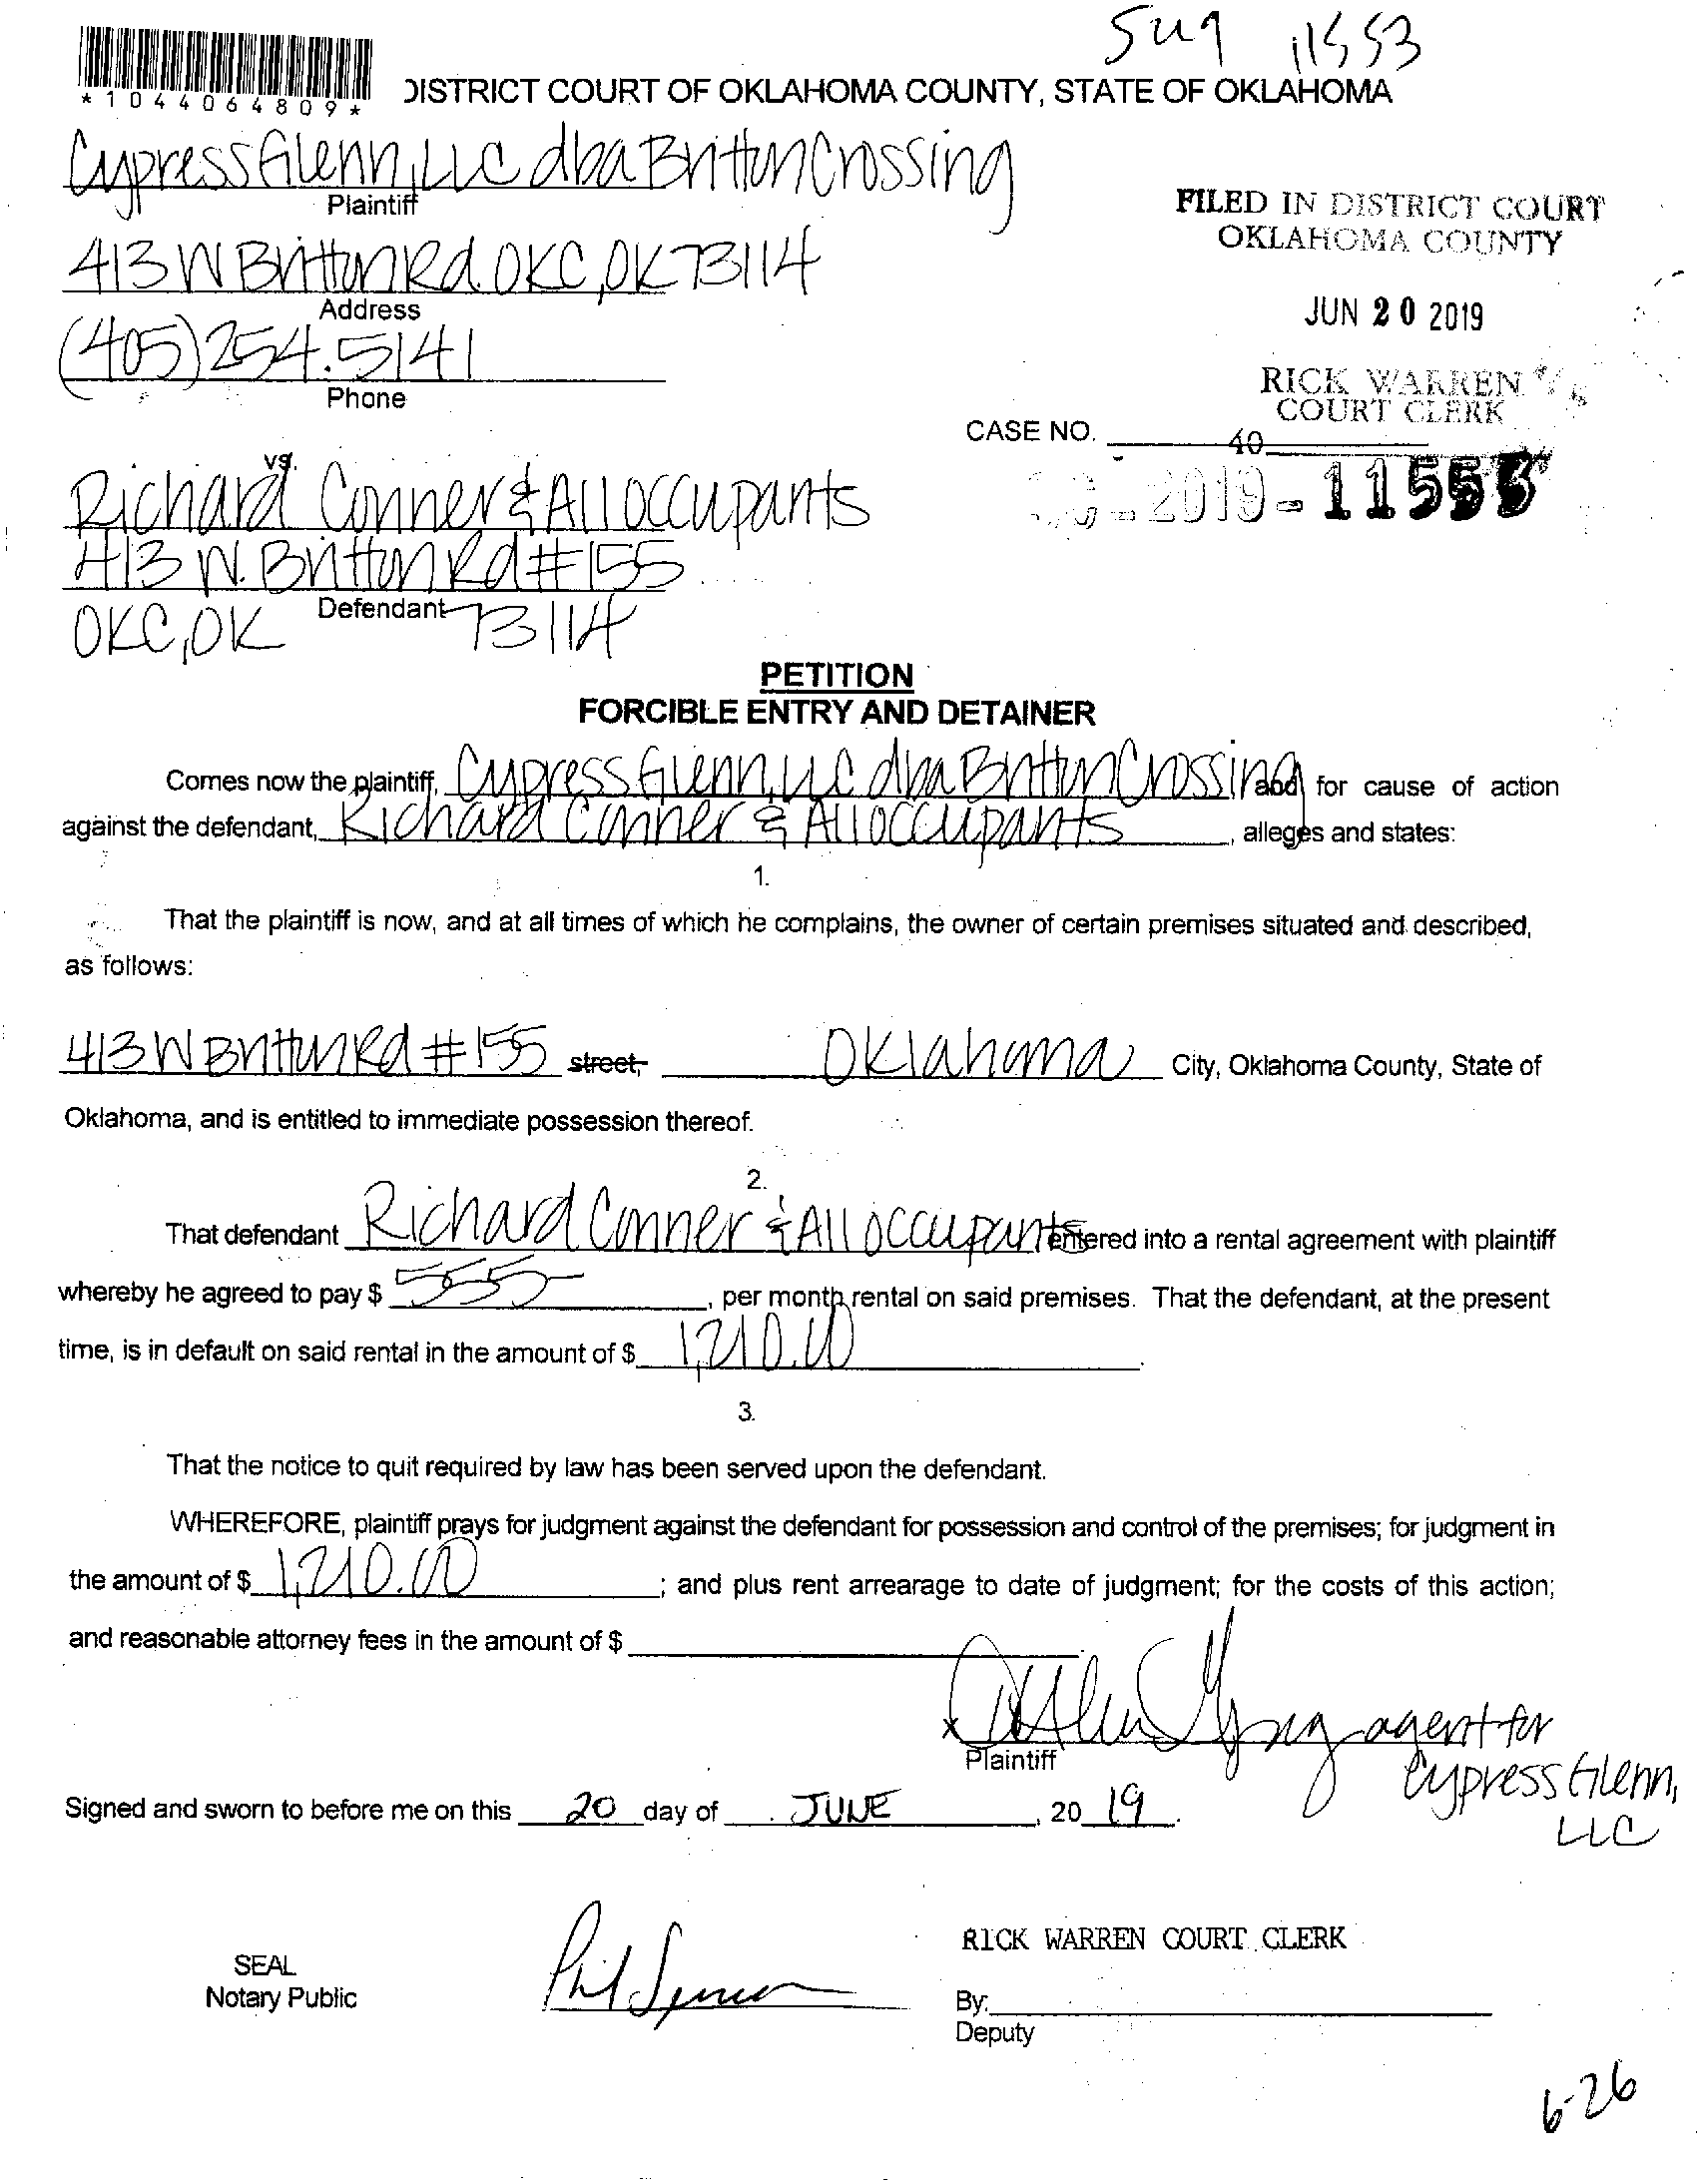 11553
*1044064809*
DISTRICT COURT OF OKLAHOMA COUNTY, STATE OF OKLAHOMA
Cypress Glenn, LLC dba Britton Crossing
Plaintiff
413 W Britton Rd. OKC, OK 73114
Address
(405) 254.5141
Phone
FILED IN DISTRICT COURT
OKLAHOMA COUNTY
JUN 20 2019
RICK WARREN
COURT CLERK
CASE NO.
40
2019-11553
vs.
Richard Conner & All occupants
413 W. Britton Rd #155
Defendant
OKC, OK 73114
PETITION
FORCIBLE ENTRY AND DETAINER
Comes now the plaintiff, Cypress Glenn, LLC dba Britton Crossing and for cause of action
against the defendant, Richard Conner & All occupants, alleges and states:
1.
That the plaintiff is now, and at all times of which he complains, the owner of certain premises situated and described,
as follows:
413 W Britton Rd #155 street, Oklahoma City, Oklahoma County, State of
Oklahoma, and is entitled to immediate possession thereof.
2.
That defendant Richard Conner & All occupants entered into a rental agreement with plaintiff
whereby he agreed to pay $ 555, per month rental on said premises. That the defendant, at the present
time, is in default on said rental in the amount of $ 1,210.00.
3.
That the notice to quit required by law has been served upon the defendant.
WHEREFORE, plaintiff prays for judgment against the defendant for possession and control of the premises; for judgment in
the amount of $ 1,210.00; and plus rent arrearage to date of judgment; for the costs of this action;
and reasonable attorney fees in the amount of $
x agent for
Plaintiff
Cypress Glenn,
LLC
Signed and sworn to before me on this 20 day of JUNE, 20 19.
SEAL
Notary Public
RICK WARREN COURT CLERK
By:
Deputy
6-26